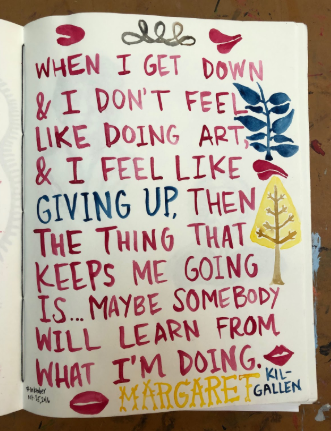 WHEN I GET DOWN
& I DON'T FEEL
LIKE DOING ART,
& I FEEL LIKE
GIVING UP, THEN
THE THING THAT
KEEPS ME GOING
IS... MAYBE SOMEBODY
WILL LEARN FROM
WHAT I'M DOING.
MARGARET KIL-
GALLEN